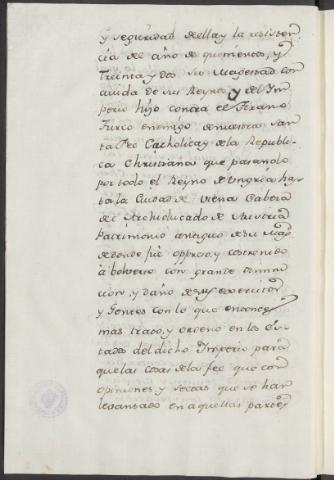 y seguridad della y la resisten
cia de año de quinientos, y
treinta y dos su Magestad con
ayuda de sus Reynos y del Im
perio hijo contra el Tirano
Turco enemigo de nuestra san
ta Fee Catholica y de la Republi
ca Christiana que pasando
por todo el Reyno de Ungria has
ta la Ciudad de Viena Cabeza
del Archiducado de Austria
Patrimonio antiguo de su Magd
de donde fue oppreso, y costrenido
à bolverse con grande diminu
cion, y daño de sus exercitos
y Gentes con lo que entonces
mas trato, y ordeno en los Es
tados del dicho Imperio para
que las cosas de la fee que con
opiniones, y sectas que se han
levantado en aquellas partes